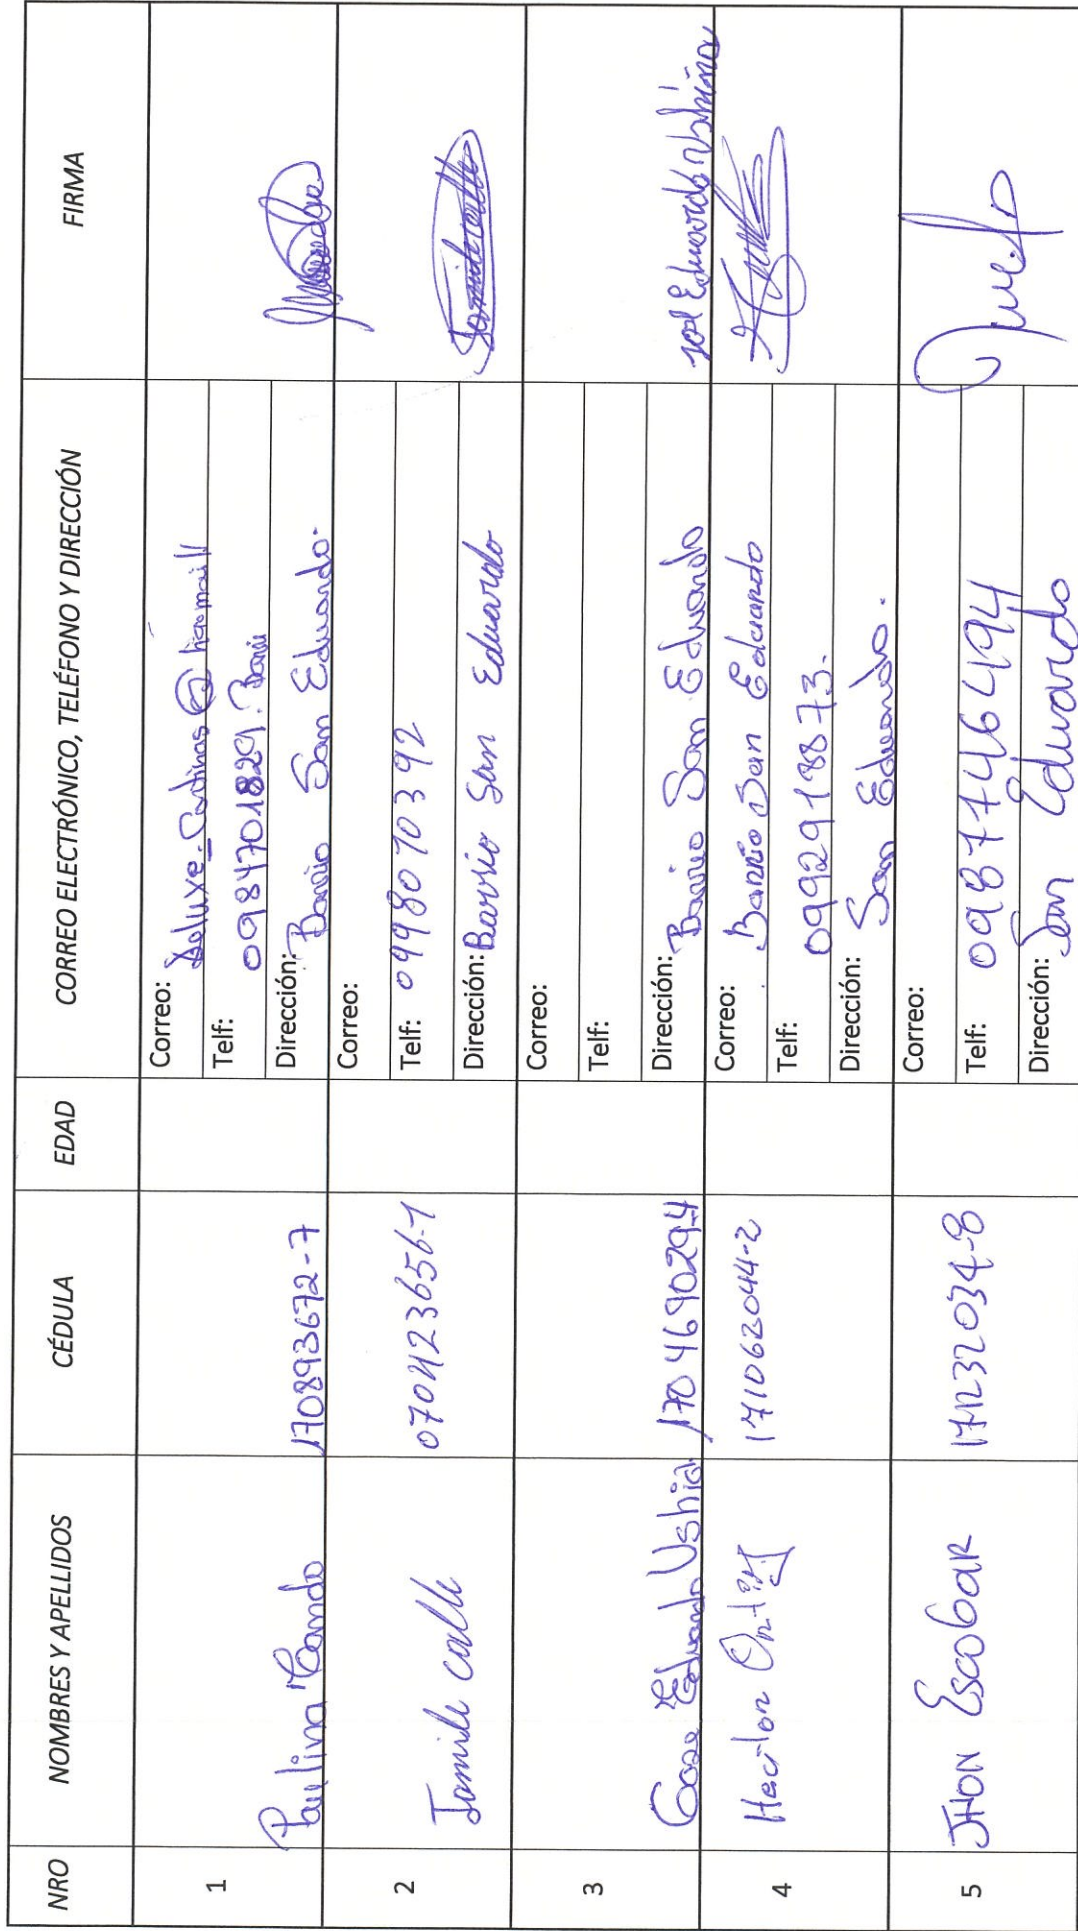 NRO NOMBRES Y APELLIDOS CÉDULA EDAD CORREO ELECTRÓNICO, TELÉFONO Y DIRECCIÓN FIRMA
1 Paulina Cando 170893672-7
Correo: Deluxe-Cardinas@
Telf: 0984701829.
Dirección: Barrio San Eduardo.
2 Jamile calle 070423656-1
Correo:
Telf: 0998070392
Dirección: Barrio San Eduardo
Jamile calle
3 Eduardo Ushiña 170469029-4
Correo:
Telf:
Dirección: Barrio San Eduardo
José Eduardo Ushiña
4 Hector Ortiz 171062044-2
Correo: Barrio San Eduardo
Telf: 0992918873.
Dirección: San Eduardo.
5 JHON EscobaR 171232034-8
Correo:
Telf: 0987746494
Dirección: San Eduardo